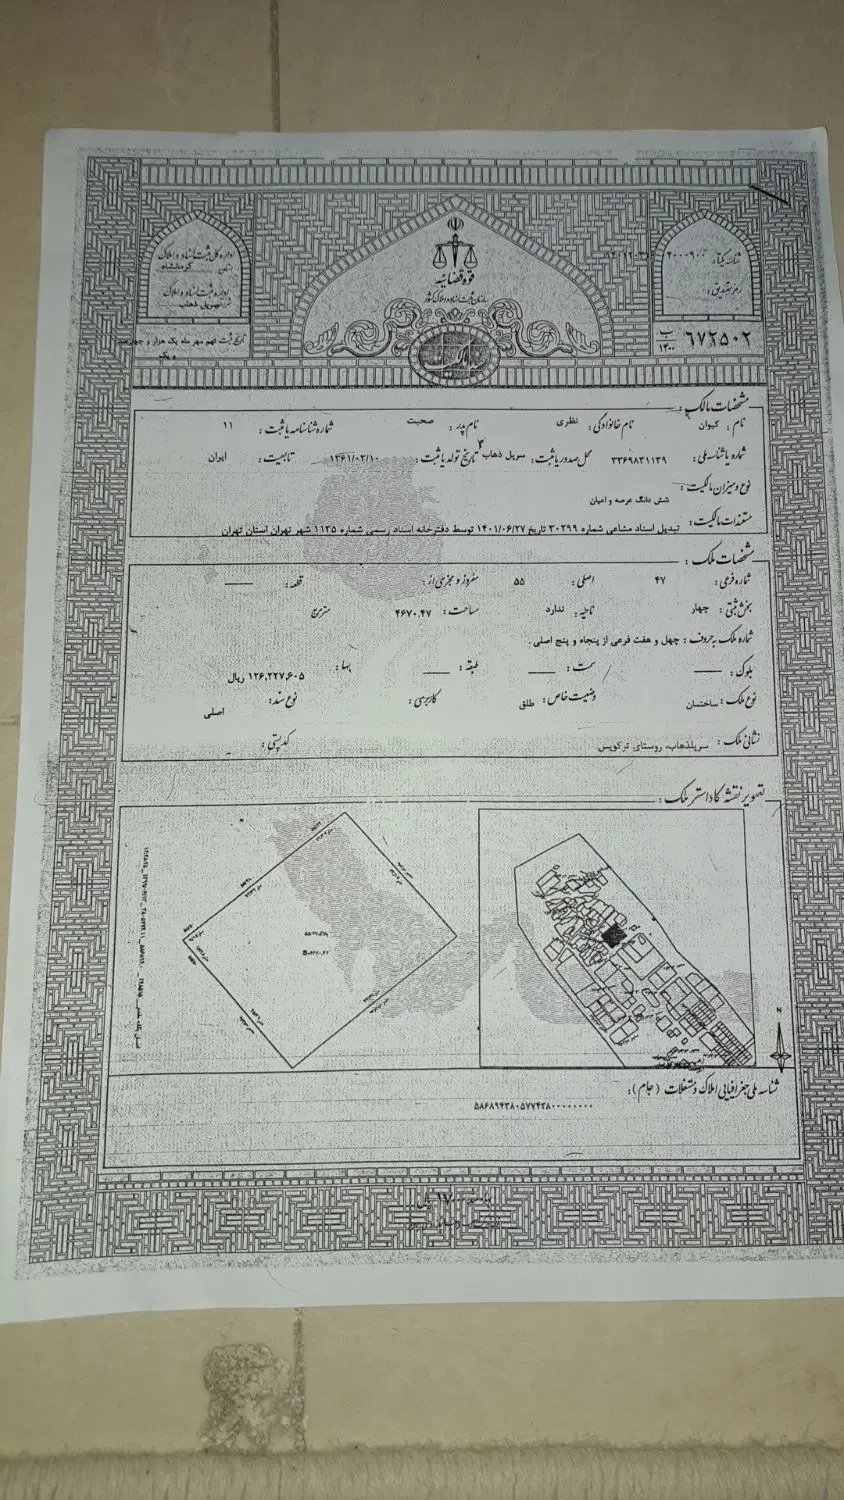 قوه قضائیه
سازمان ثبت اسناد و املاک کشور
اداره کل ثبت اسناد و املاک
استان کرمانشاه
اداره ثبت اسناد و املاک
سرپل ذهاب
تاریخ ثبت نهم مهر ماه یک هزار و چهارصد و یک
شناسه یکتا:
رمز تصدیق:
۶۷۲۵۰۲ ب ۱۴۰۰
مشخصات مالک:
نام: کیوان نام خانوادگی: نظری نام پدر: صحبت شماره شناسنامه یا ثبت: ۱۱
شماره یا شناسه ملی: ۳۳۶۹۸۳۱۱۳۹ محل صدور یا ثبت: سرپل ذهاب تاریخ تولد یا ثبت: ۱۳۶۱/۰۳/۱۰ تابعیت: ایران
نوع و میزان مالکیت: شش دانگ عرصه و اعیان
مستندات مالکیت: تبدیل اسناد مشاعی شماره ۳۰۲۹۹ تاریخ ۱۴۰۱/۰۶/۲۷ توسط دفترخانه اسناد رسمی شماره ۱۱۲۵ شهر تهران استان تهران
مشخصات ملک:
شماره فرعی: ۴۷ اصلی: ۵۵ مفروز و مجزی از: قطعه:
بخش ثبتی: چهار ناحیه: ندارد مساحت: ۴۶۷۰.۴۷ مترمربع
شماره ملک به حروف: چهل و هفت فرعی از پنجاه و پنج اصلی.
بلوک: سمت: طبقه: بها: ۱۲۶,۲۲۷,۶۰۵ ریال
نوع ملک: ساختمان وضعیت خاص: طلق کاربری: نوع سند: اصلی
نشانی ملک: سرپلذهاب، روستای ترکویس کد پستی:
تصویر نقشه کاداستر ملک:
N
شناسه ملی جغرافیایی املاک و مستغلات (جام):
۵۸۶۸۹۴۳۸۰۵۷۷۴۳۸۰۰۰۰۰۰۰۰